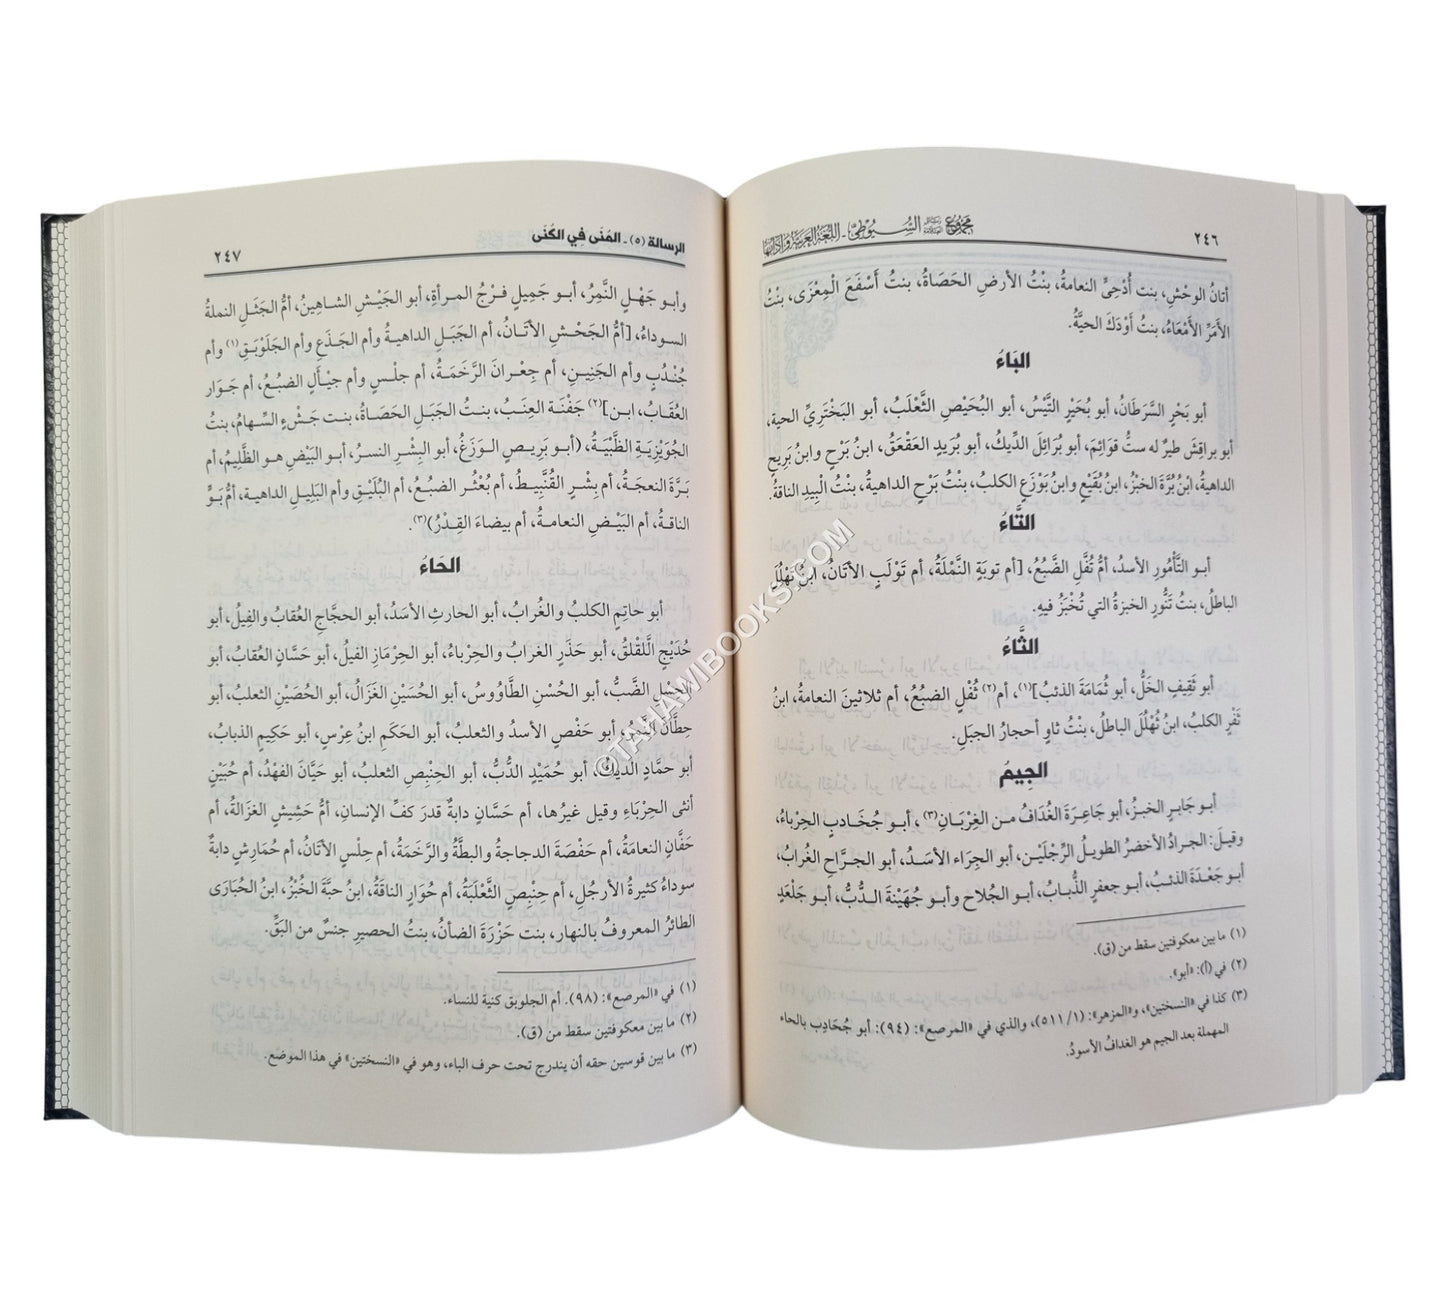 ٢٤٦
مجموع رسائل العلامة السيوطي - اللغة العربية وآدابها
أتانُ الوحْشِ، بنت أُدْحِيٍّ النعامةُ، بنتُ الأرضِ الحَصَاةُ، بنتُ أَسْفَعَ الْمِعْزَى، بنتُ
الأَمَرِّ الأَمْعَاءُ، بنتُ أَوْدَكَ الحيَّةُ.
البَاءُ
أبو بَحْرٍ السَّرَطَانُ، أبو بُحَيْرٍ التَّيْسُ، أبو البُحَيْصِ الثَّعْلَبُ، أبو البَخْتَرِيِّ الحية،
أبو براقِشَ طيرٌ له ستُّ قوائِمَ، أبو بُرَائِلَ الدِّيكُ، أبو بُرَيدٍ العَقْعَقُ، ابنُ بَرْحٍ وابنُ بَرِيحٍ
الداهيةُ، ابْنُ بُرَّةَ الخبْزُ، ابنُ بُقَيْعٍ وابنُ بَوْزَعٍ الكلبُ، بنتُ بَرْحٍ الداهيةُ، بنْتُ الْبِيدِ الناقةُ.
التَّاءُ
أبو التَّأْمُورِ الأسدُ، أمُّ تُفَّل الضَّبُعُ، [أم توبةَ النَّمْلَةُ، أم تَوْلَبٍ الأتَانُ، ابنُ تُهْلَلَ
الباطلُ، بنتُ تَنُّورٍ الخبزةُ التي تُخْبَزُ فيهِ.
الثَّاءُ
أبو ثَقِيفٍ الخَلُّ، أبو ثُمَامَةَ الذئبُ](١)، أم(٢) ثُفْلٍ الضبُعُ، أم ثلاثينَ النعامةُ، ابنُ
ثَفْرٍ الكلبُ، ابنُ ثُهْلُلَ الباطلُ، بنْتُ ثاوٍ أحجارُ الجبَلِ.
الجِيمُ
أبو جَابِرٍ الخبزُ، أبو جَاعِرَةَ الغُدَافُ مـن الغِرْبَانِ(٣)، أبـو جُخَـادبٍ الحِرْباءُ،
وقيلَ: الجرادُ الأخضرُ الطويلُ الرِّجْلَيْن، أبو الجِرَاءِ الأسَدُ، أبو الجرَّاحِ الغُرابُ،
أبو جَعْدَةَ الذئبُ، أبو جعفرٍ الذُّبابُ، أبـو الجُلاح وأبـو جُهَيْنَةَ الـدُّبُّ، أبـو جَلْعَدٍ
(١) ما بين معكوفتين سقط من (ق).
(٢) في (أ): «أبو».
(٣) كذا في «النسختين»، و«المزهر»: (٥١١/١)، والذي في «المرصع»: (٩٤): أبو جُحَادِب بالحاء
المهملة بعد الجيم هو الغدافُ الأسودُ.
الرسالة (٥) - المُنَى فِي الكُنَى
٢٤٧
وأبـو جَهْلٍ النَّمِرُ، أبـو جَمِيلٍ فـرْجُ المـرأةِ، أبو الجَيْشِ الشـاهِينُ، أمُّ الجَثَلِ النملةُ
السـوداءُ، [أمُّ الجَحْشِ الأتَـانُ، أم الجَبَلِ الداهيـةُ وأم الجَذَعِ وأم الجَلَوْبَقِ(١) وأم
جُنْدُبٍ وأم الجَنِينِ، أم جِعْرانَ الرَّخَمَةُ، أم جلْسٍ وأم جيْأَلٍ الضبُعُ، أم جَوَار
العُقَابُ، ابـن](٢) جَفْنَةَ العِنَبُ، بنتُ الجَبَلِ الحَصَاةُ، بنت جَشْءٍ السِّهامُ، بنتُ
الجُوَيْزِيَةِ الظَّبْيَةُ، (أبـو بَرِيـصٍ الـوَزَغُ، أبو البِشْرِ النسرُ، أبـو البَيْضِ هـو الظَّلِيمُ، أم
بَرَّةَ النعجـةُ، أم بِشْرٍ القُنَّبِيطُ، أم بُعْثُر الضبُعُ، أم البُلَيْقِ وأم البَلِيلِ الداهية، أمُّ بَوٍّ
الناقةُ، أم البَيْضِ النعامـةُ، أم بيضاءَ القِـدْرُ)(٣).
الحَاءُ
أبو حاتِمٍ الكلبُ والغُرابُ، أبو الحارثِ الأسَدُ، أبو الحجَّاجِ العُقابُ والفِيلُ، أبو
حُدَيْجٍ اللَّقْلقُ، أبو حَذَرٍ الغرابُ والحِرْباءُ، أبو الحِرْمازِ الفيلُ، أبو حَسَّانَ العُقابُ، أبو
الحِسْلِ الضَّبُّ، أبو الحُسْنِ الطَّاوُوسُ، أبو الحُسَيْنِ الغَزَالُ، أبو الحُصَيْنِ الثعلبُ، أبو
حِطَّانَ النمِرُ، أبو حَفْصٍ الأسدُ والثعلبُ، أبو الحَكَمِ ابنُ عِرْسٍ، أبو حَكِيمٍ الذبابُ،
أبو حمَّادٍ الديكُ، أبو حُمَيْدٍ الدُّبُّ، أبو الحِنْبِصِ الثعلبُ، أبو حَيَّانَ الفَهْدُ، أم حُبَيْنٍ
أنثى الحِرْبَاءِ وقيل غيرُها، أم حَسَّانٍ دابةٌ قدرَ كفِّ الإنسانِ، أمُّ حَشِيشٍ الغزالةُ، أم
حَفَّانٍ النعامَةُ، أم حَفْصَةَ الدجاجةُ والبطَّةُ والرَّخَمَةُ، أم حِلْسٍ الأتَانُ، أم حُمَارِسٍ دابةٌ
سوداءُ كثيرةُ الأرجُلِ، أم حِنْبِصٍ الثَّعْلَبَةُ، أم حُوَارٍ الناقَةُ، ابنُ حبَّةَ الخُبْزُ، ابنُ الحُبَارَى
الطائرُ المعروفُ بالنهار، بنت حَزْرَةَ الضأنُ، بنتُ الحصيرِ جنسٌ من البَقِّ.
(١) في «المرصع»: (٩٨). أم الجلوبق كنية للنساء.
(٢) ما بين معكوفتين سقط من (ق).
(٣) ما بين قوسين حقه أن يندرج تحت حرف الباء، وهو في «النسختين» في هذا الموضع.
©TAHAWIBOOKS.COM